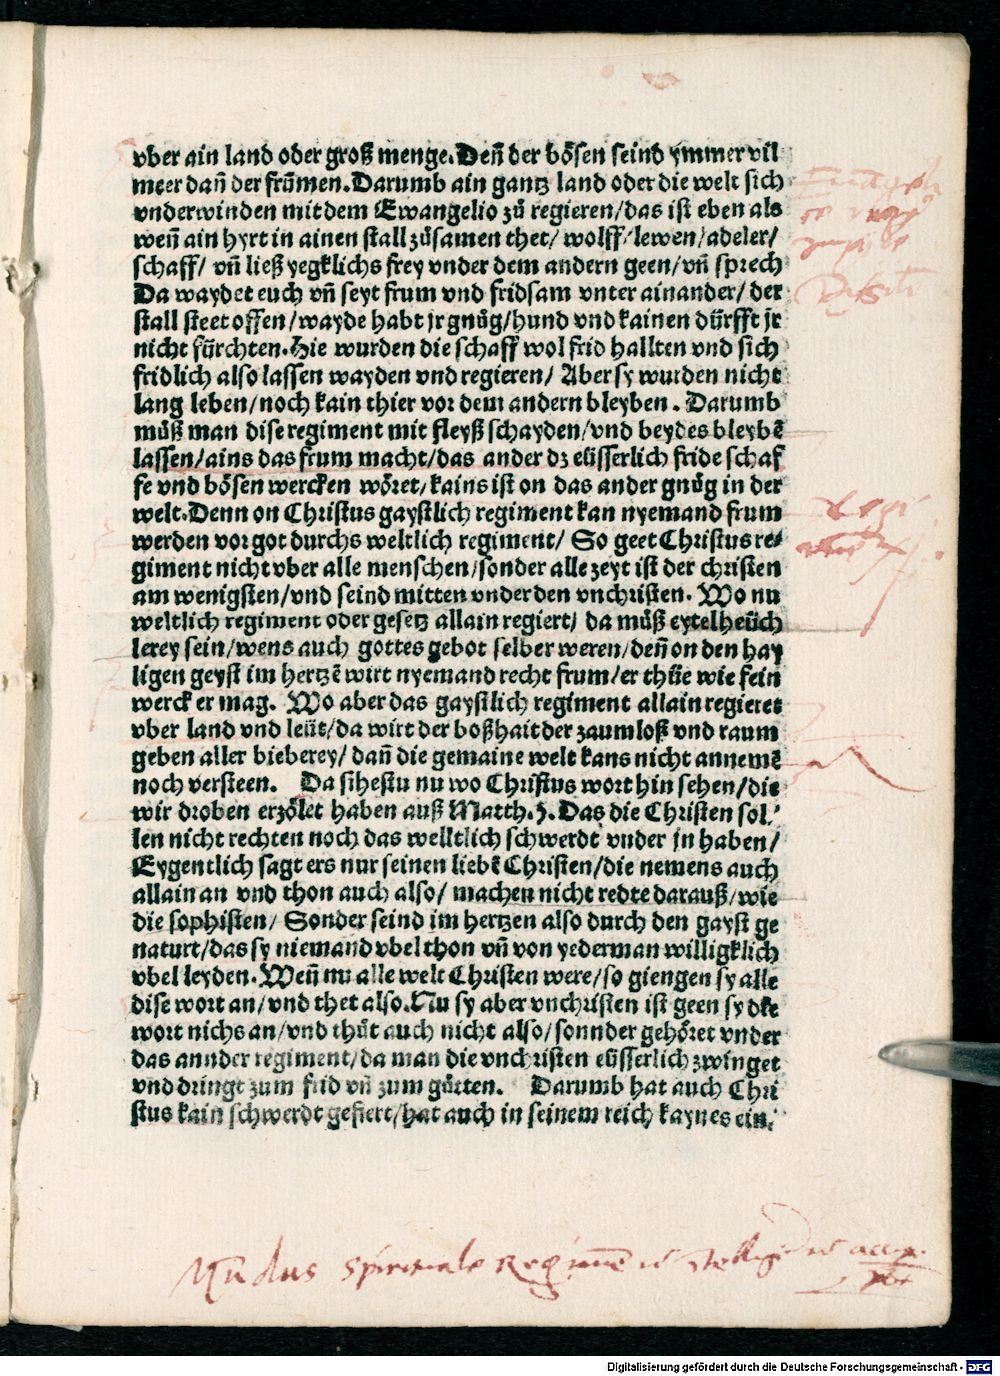 vber ain land oder groß menge. Deñ der bösen seind ymmer vil
meer dañ der frũmen. Darumb ain gantz land oder die welt sich
vnderwinden mit dem Ewangelio zů regieren/das ist eben als
weñ ain hyrt in ainen stall zůsamen thet/ wolff/ lewen/adeler/
schaff/ vñ ließ yegklichs frey vnder dem andern geen/vñ sprech
Da waydet euch vñ seyt frum vnd fridsam vnter ainander/ der
stall steet offen/wayde habt jr gnůg/hund vnd kainen dürfft jr
nicht fürchten. Hie wurden die schaff wol frid hallten vnd sich
fridlich also lassen wayden vnd regieren/ Aber sy wurden nicht
lang leben/noch kain thier vor dem andern bleyben. Darumb
můß man dise regiment mit fleyß schayden/vnd beydes bleybẽ
lassen/ains das frum macht/das ander dz eüsserlich fride schaf
fe vnd bösen wercken wöret/kains ist on das ander gnůg in der
welt. Denn on Christus gaystlich regiment kan nyemand frum
werden vor got durchs weltlich regiment/ So geet Christus re⸗
giment nicht vber alle menschen/sonder alle zeyt ist der christen
am wenigsten/vnd seind mitten vnder den vnchristen. Wo nu
weltlich regiment oder gesetz allain regiert/ da můß eytel heüch
lerey sein/wens auch gottes gebot selber weren/deñ on den hay
ligen geyst im hertzẽ wirt nyemand recht frum/er thüe wie fein
werck er mag. Wo aber das gaystlich regiment allain regieret
vber land vnd leüt/da wirt der boßhait der zaum loß vnd raum
geben aller bieberey/ dañ die gemaine welt kans nicht annemẽ
noch versteen. Da sihestu nu wo Christus wort hin sehen/die
wir droben erzölet haben auß Matth.5. Das die Christen sol⸗
len nicht rechten noch das welltlich schwerdt vnder jn haben/
Eygentlich sagt ers nur seinen liebẽ Christen/die nemens auch
allain an vnd thon auch also/ machen nicht redte darauß/wie
die sophisten/ Sonder seind im hertzen also durch den gayst ge
naturt/das sy niemand vbel thon vñ von yederman willigklich
vbel leyden. Weñ nu alle welt Christen were/so giengen sy alle
dise wort an/vnd thet also. Nu sy aber vnchristen ist geen sy die
wort nichs an/vnd thůt auch nicht also/sonnder gehöret vnder
das annder regiment/da man die vnchristen eüsserlich zwinget
vnd dringt zum frid vñ zum gůtten. Darumb hat auch Chri
stus kain schwerdt gefiert/hat auch in seinem reich kaynes ein⸗
Mũdus spirituale Regimẽ
Digitalisierung gefördert durch die Deutsche Forschungsgemeinschaft - DFG